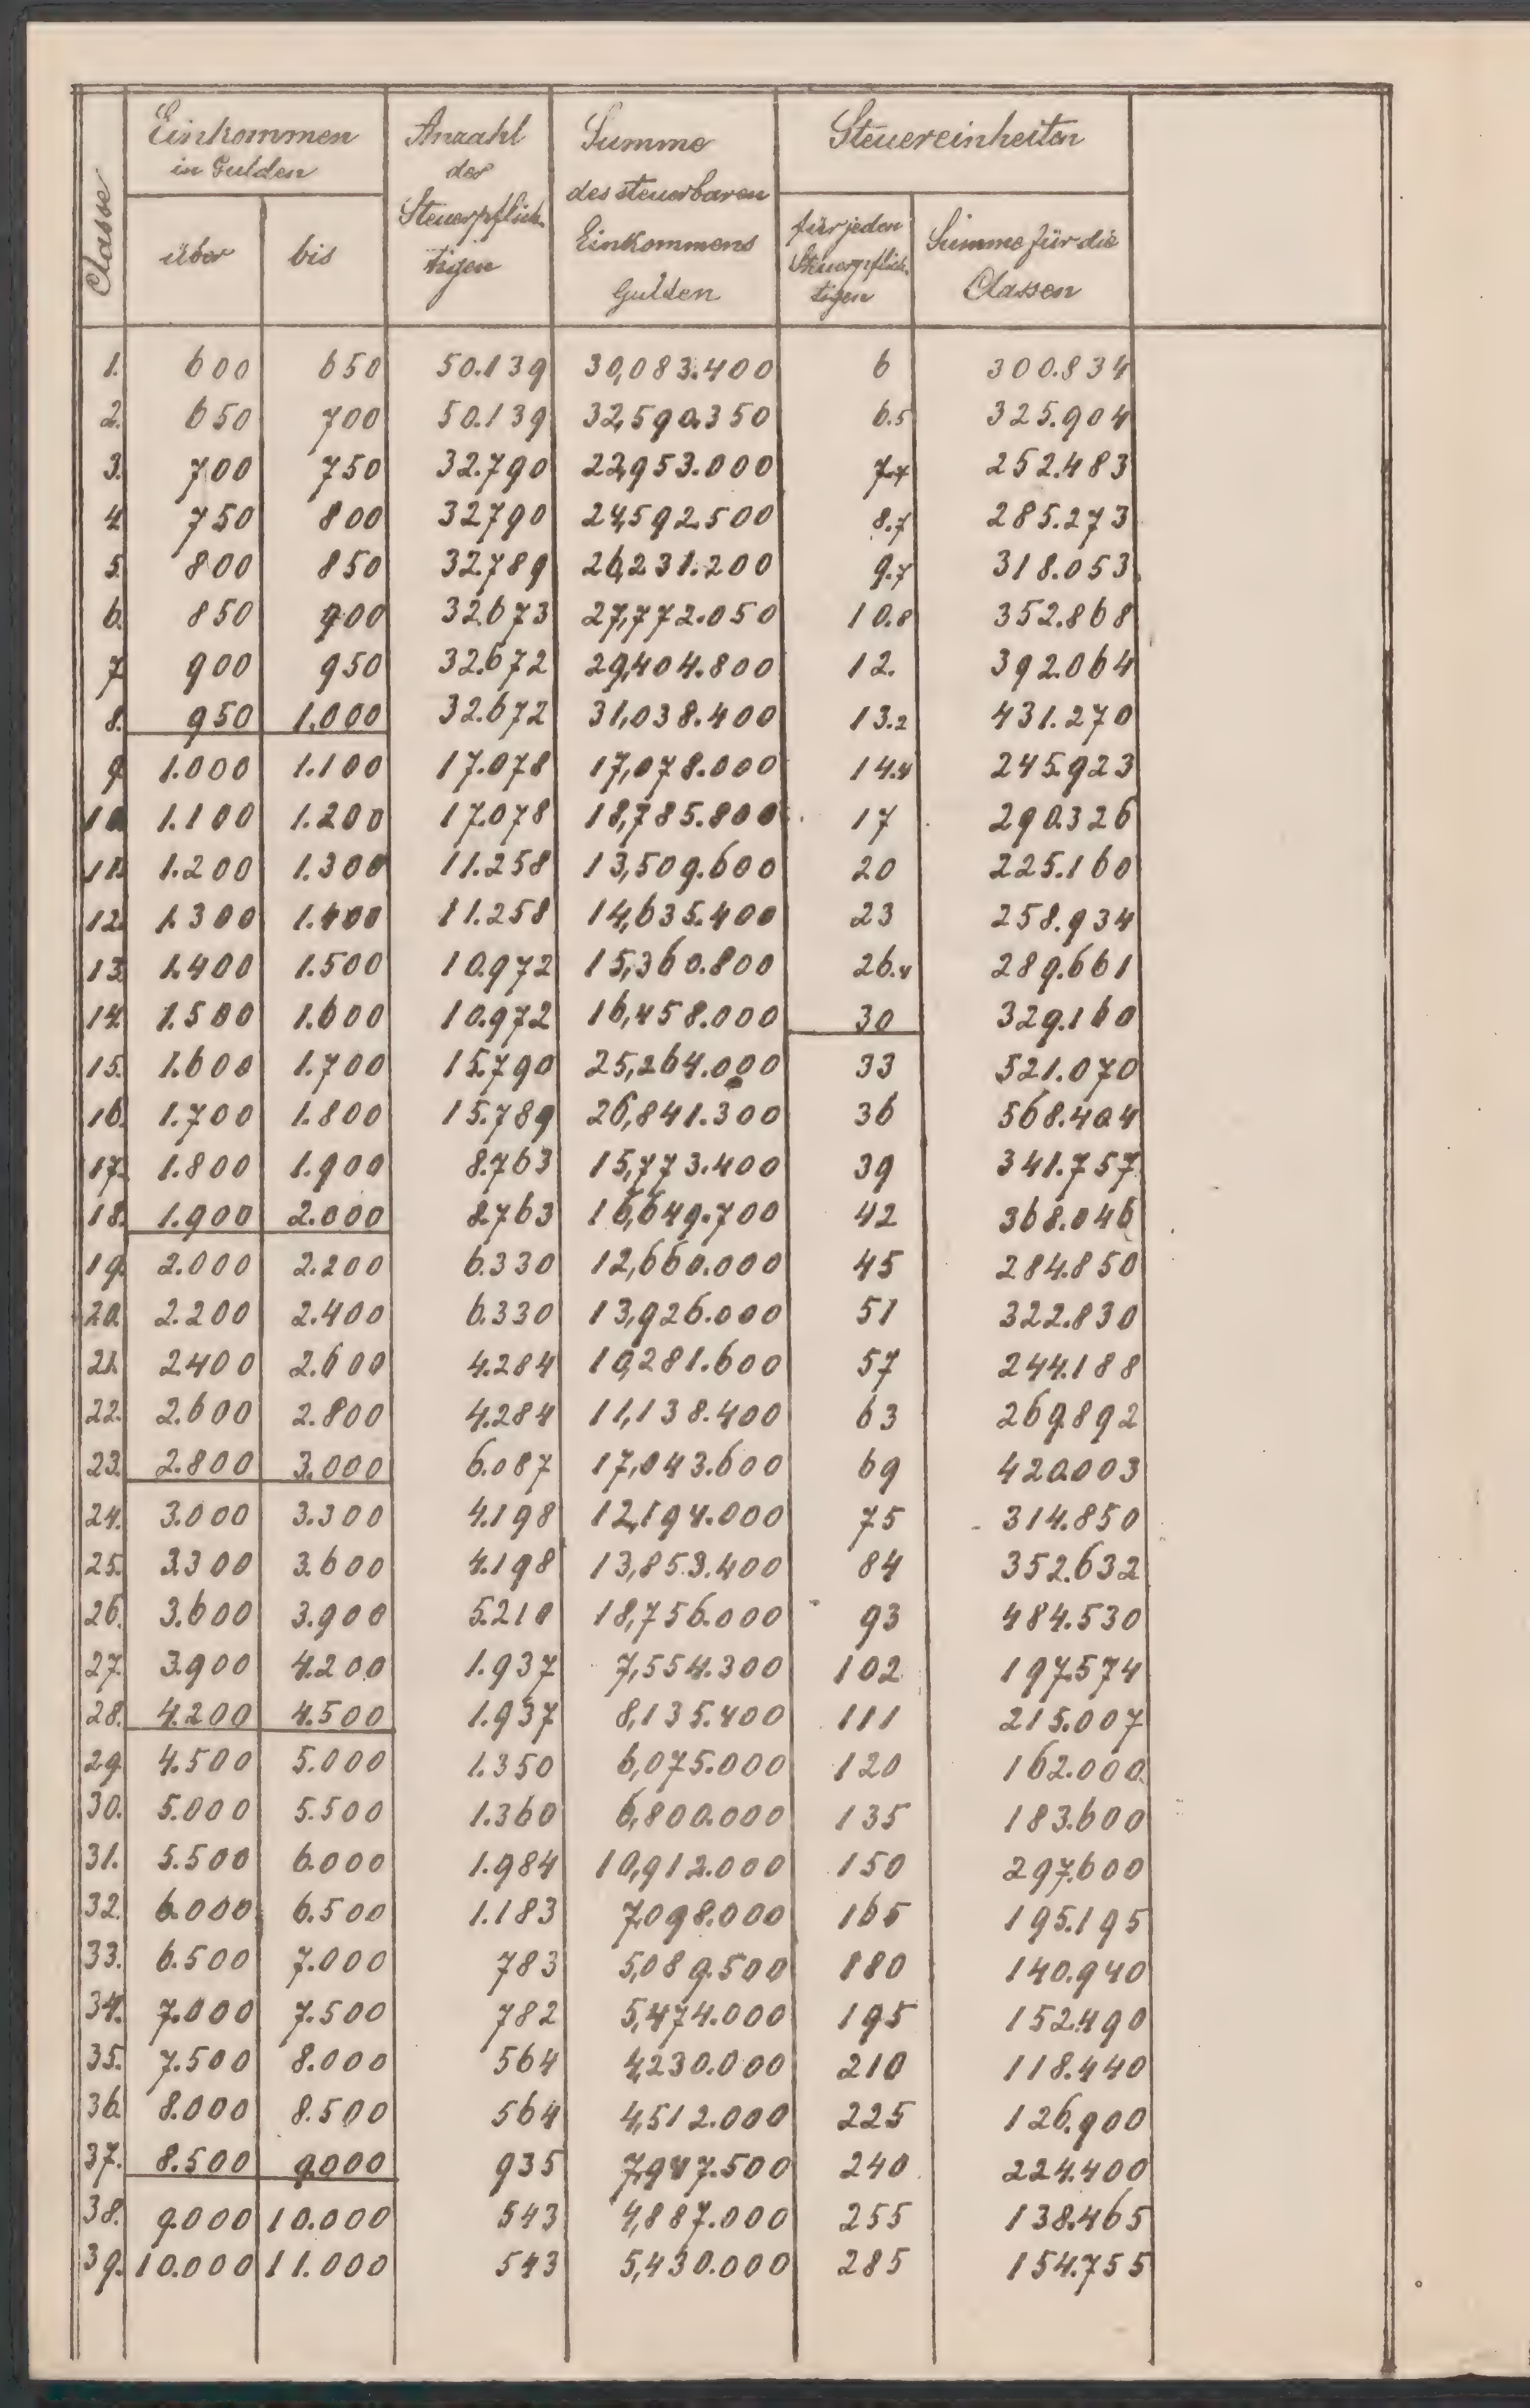 Classe | Einkommen in Gulden | Anzahl der Steuerpflich- tigen | Summe des steuerbaren Einkommens Gulden | Steuereinheiten
über | bis | für jeden Steuerpflich- tigen | Summe für die Classen
1. 600 650 50.139 30,083.400 6 300.834
2. 650 700 50.139 32,590.350 6.5 325.904
3. 700 750 32.790 22,953.000 7.7 252.483
4. 750 800 32.790 24,592.500 8.7 285.273
5. 800 850 32.789 26,231.200 9.7 318.053
6. 850 900 32.673 27,772.050 10.8 352.868
7. 900 950 32.672 29,404.800 12. 392.064
8. 950 1.000 32.672 31,038.400 13.2 431.270
9. 1.000 1.100 17.078 17,078.000 14.4 245.923
10. 1.100 1.200 17.078 18,785.800 17 290.326
11. 1.200 1.300 11.258 13,509.600 20 225.160
12. 1.300 1.400 11.258 14,635.400 23 258.934
13. 1.400 1.500 10.972 15,360.800 26.4 289.661
14. 1.500 1.600 10.972 16,458.000 30 329.160
15. 1.600 1.700 15.790 25,264.000 33 521.070
16. 1.700 1.800 15.789 26,841.300 36 568.404
17. 1.800 1.900 8.763 15,773.400 39 341.757
18. 1.900 2.000 8.763 16,649.700 42 368.046
19. 2.000 2.200 6.330 12,660.000 45 284.850
20. 2.200 2.400 6.330 13,926.000 51 322.830
21. 2.400 2.600 4.284 10,281.600 57 244.188
22. 2.600 2.800 4.284 11,138.400 63 269.892
23. 2.800 3.000 6.087 17,043.600 69 420.003
24. 3.000 3.300 4.198 12,194.000 75 314.850
25. 3.300 3.600 4.198 13,853.400 84 352.632
26. 3.600 3.900 5.210 18,756.000 93 484.530
27. 3.900 4.200 1.937 7,554.300 102 197.574
28. 4.200 4.500 1.937 8,135.400 111 215.007
29. 4.500 5.000 1.350 6,075.000 120 162.000
30. 5.000 5.500 1.360 6,800.000 135 183.600
31. 5.500 6.000 1.984 10,912.000 150 297.600
32. 6.000 6.500 1.183 7,098.000 165 195.195
33. 6.500 7.000 783 5,089.500 180 140.940
34. 7.000 7.500 782 5,474.000 195 152.490
35. 7.500 8.000 564 4,230.000 210 118.440
36. 8.000 8.500 564 4,512.000 225 126.900
37. 8.500 9.000 935 7,947.500 240 224.400
38. 9.000 10.000 543 4,887.000 255 138.465
39. 10.000 11.000 543 5,430.000 285 154.755